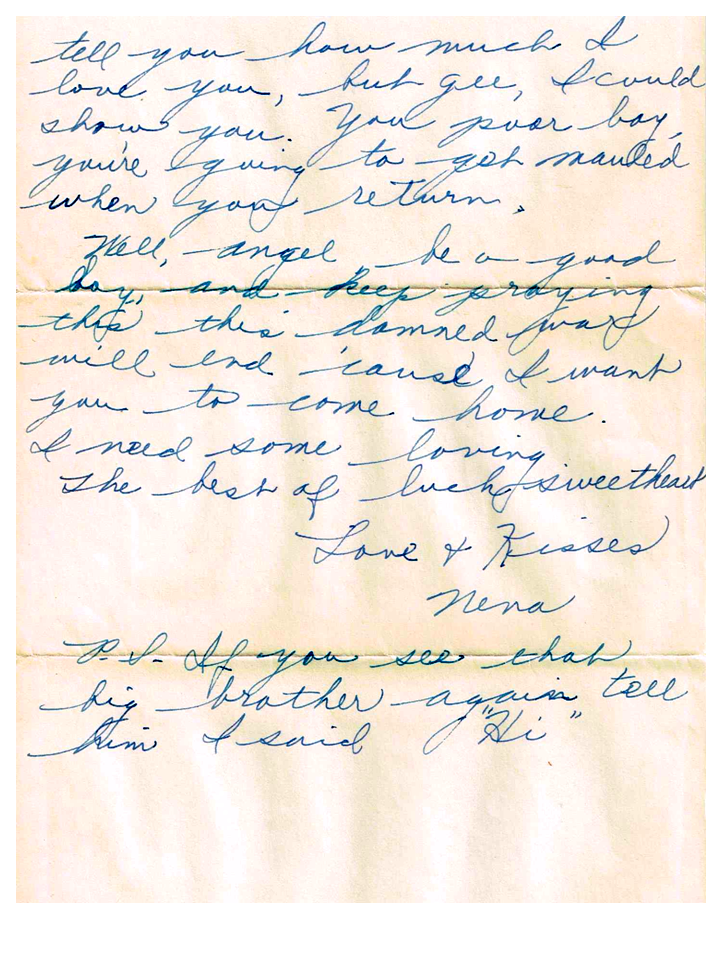 tell you how much I
love you, but gee, I could
show you. You poor boy,
you're going to get mauled
when you return.
Well, angel, be a good
boy, and keep praying
this this damned war
will end 'cause I want
you to come home.
I need some loving
The best of luck, sweetheart
Love & Kisses
Nena
P.S. If you see that
big brother again tell
him I said "Hi"